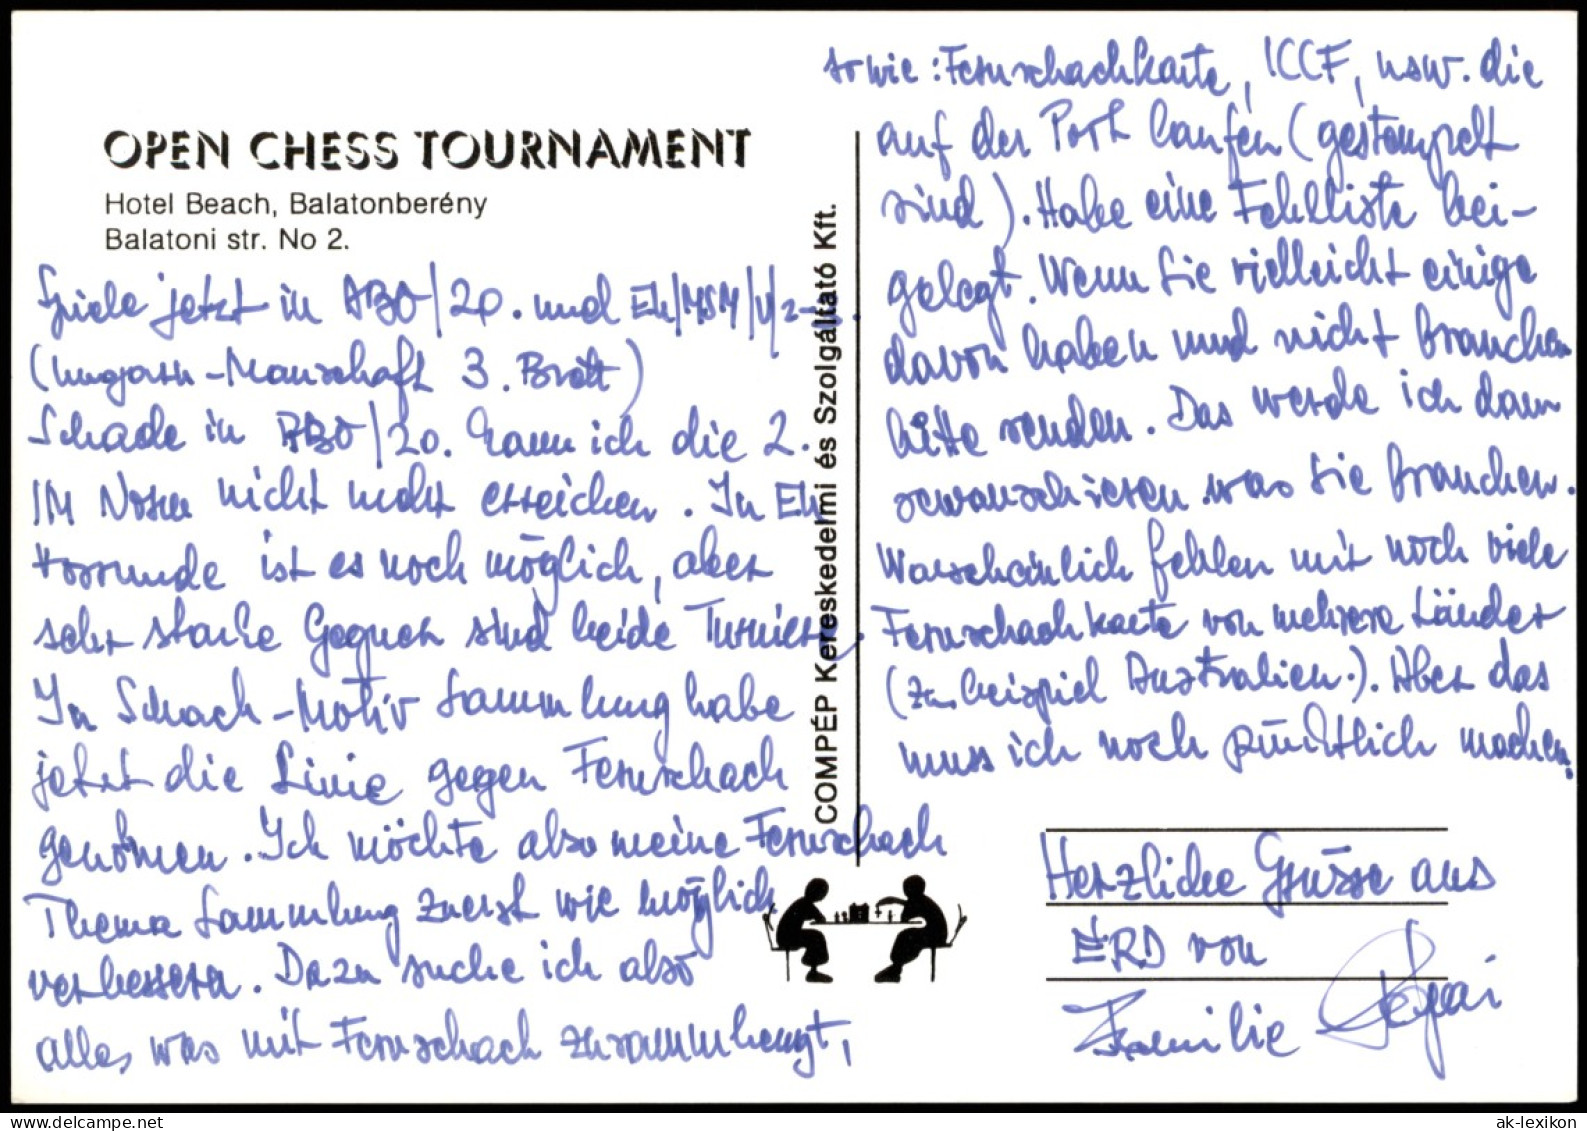 OPEN CHESS TOURNAMENT
Hotel Beach, Balatonberény
Balatoni str. No 2.
Spiele jetzt in ABO/20. und EU/MSM/V/2-3.
(Ungarn-Manschaft 3. Brett)
Schade in ABO/20. kann ich die 2.
IM Norm nicht mehr erreichen. In EU
Vorrunde ist es noch möglich, aber
sehr starke Gegner sind beide Turniere.
In Schach-Motiv Sammlung habe
jetzt die Linie gegen Fernschach
genommen. Ich möchte also meine Fernschach
Thema Sammlung zuerst wie möglich
verbessern. Dazu suche ich also
alles was mit Fernschach zusammhengt,
COMPÉP Kereskedelmi és Szolgáltató Kft.
sowie: Fernschachkarte, ICCF, usw. die
auf der Post laufen (gestempelt
sind). Habe eine Fehlliste bei-
gelegt. Wenn Sie vielleicht einige
davon haben und nicht brauchen
bitte senden. Das werde ich dann
rewanschieren was Sie brauchen.
Warscheinlich fehlen mit noch viele
Fernschachkarte von mehrere Länder
(zu beispiel Australien.). Aber das
muss ich noch pünktlich machen.
Herzliche Grüsse aus
ÉRD von
Familie
ak-lexikon.com